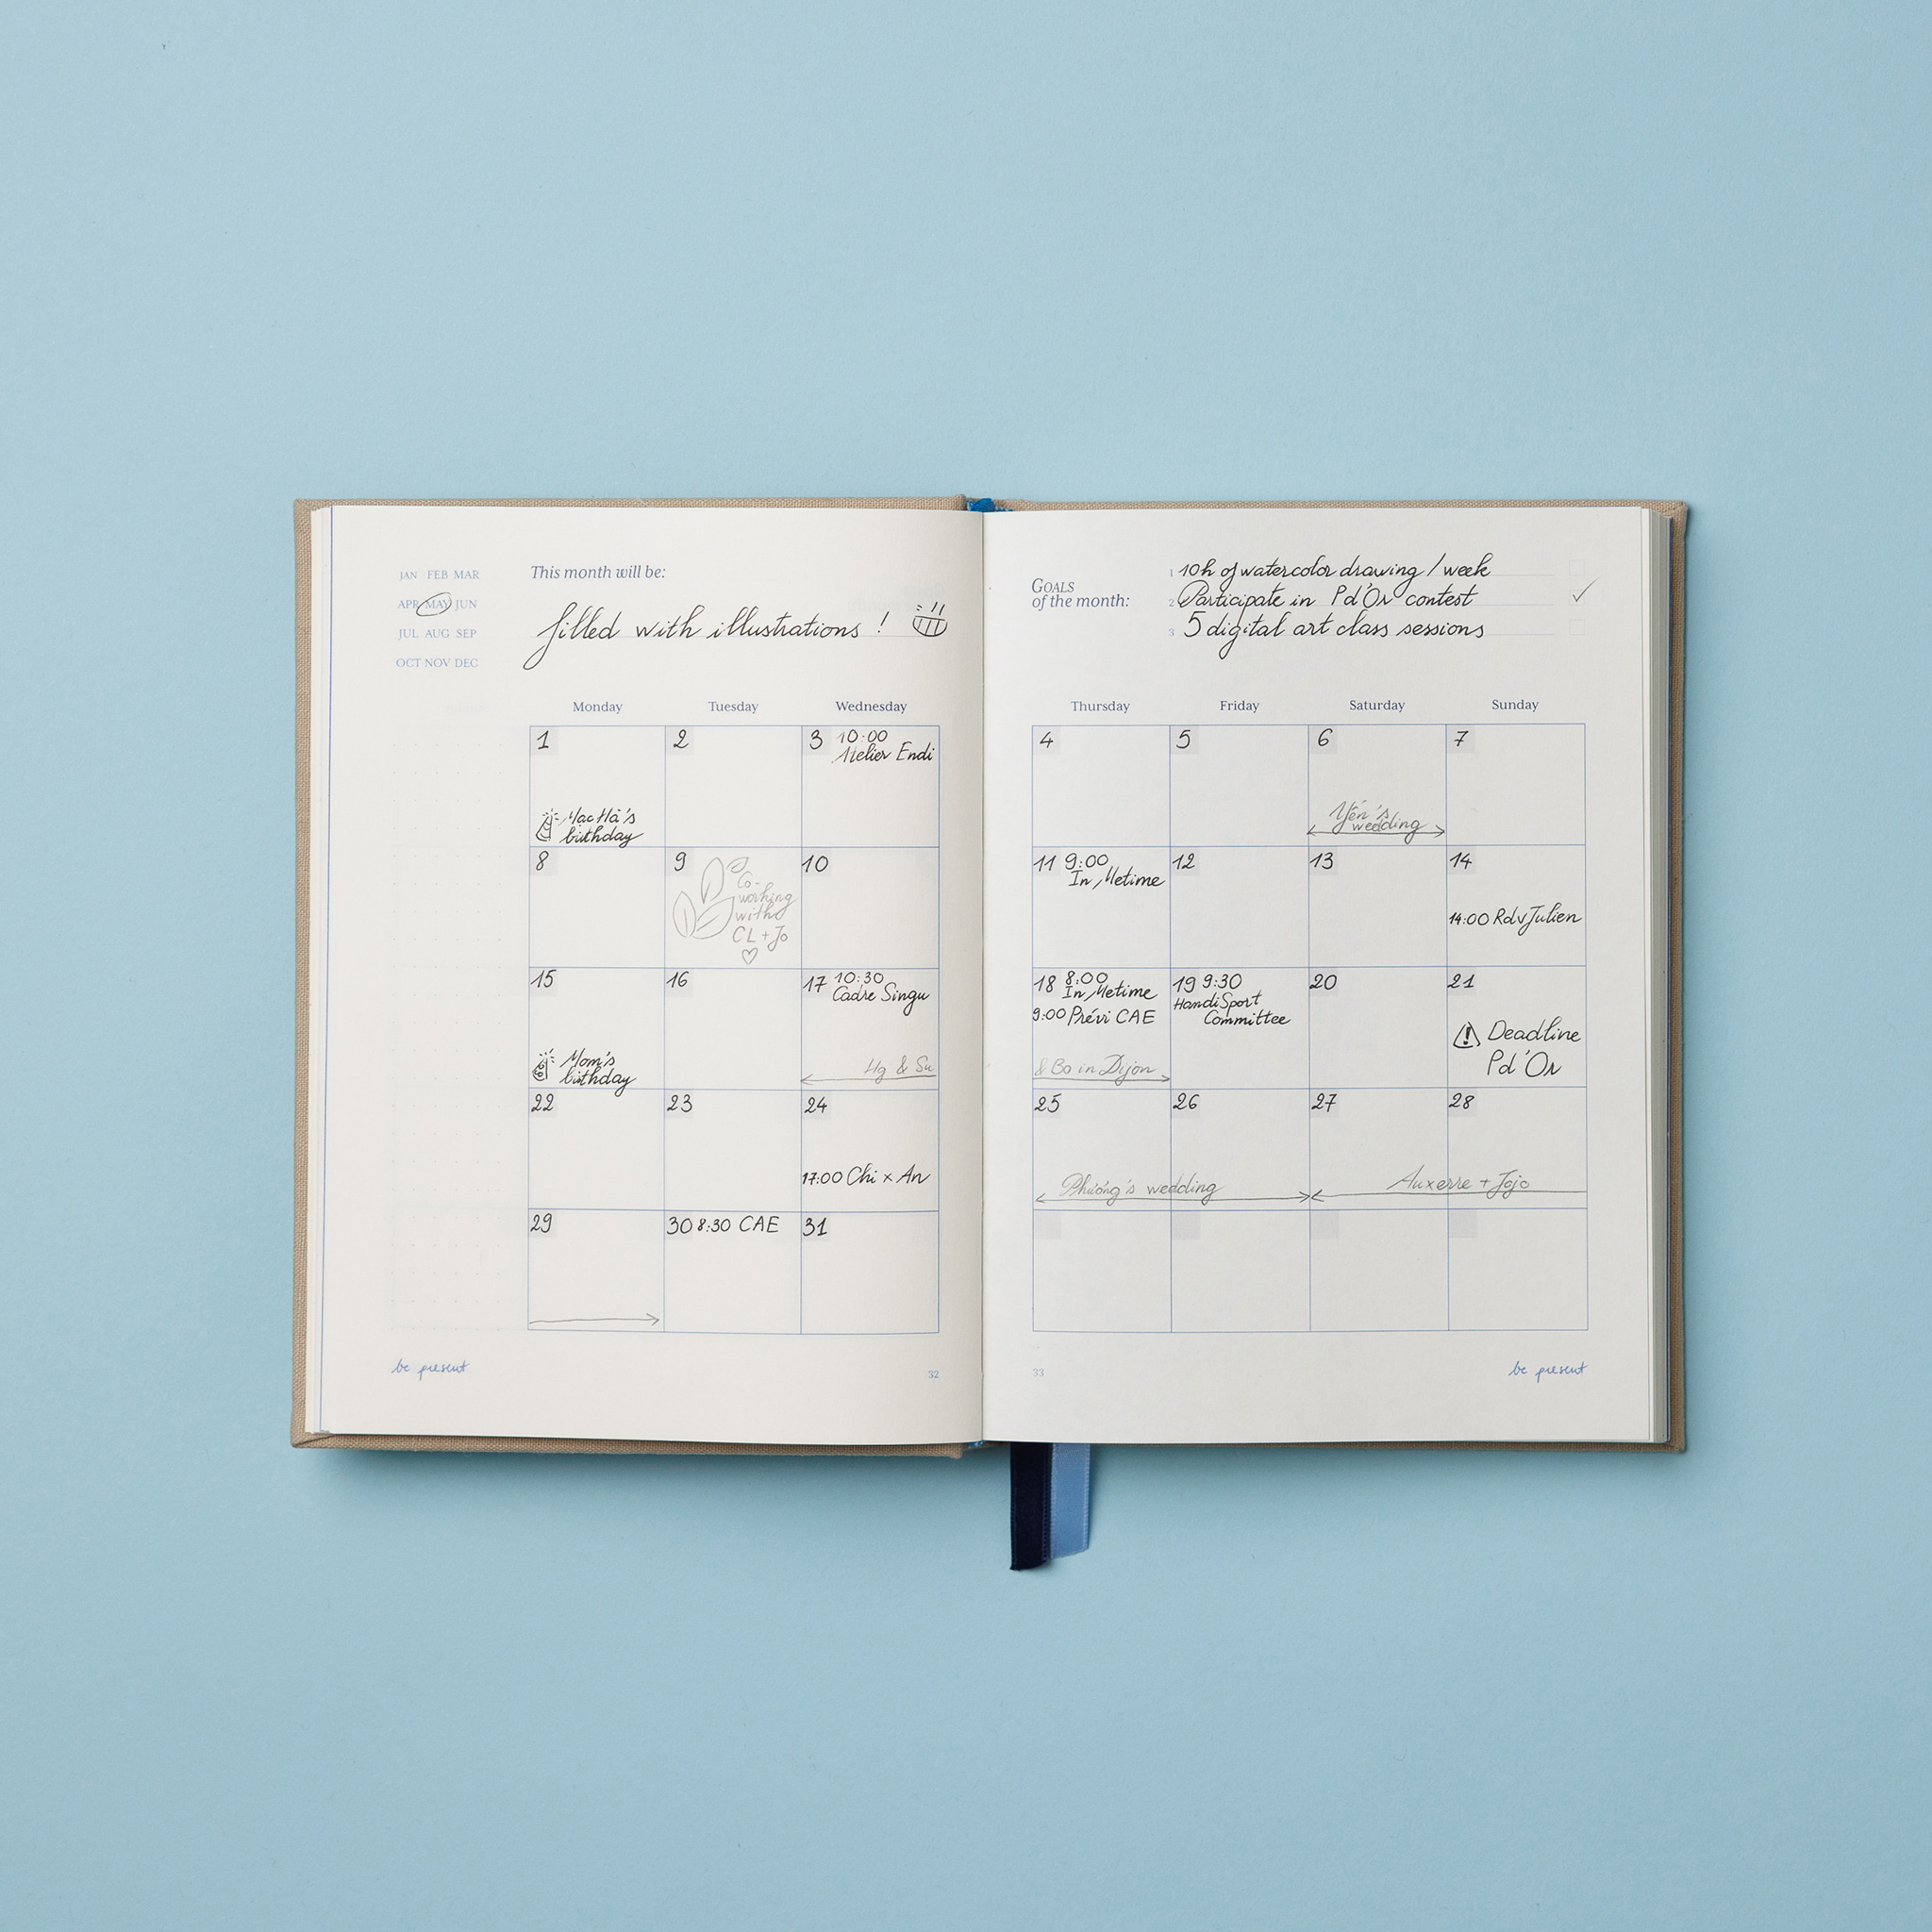 JAN FEB MAR
APR MAY JUN
JUL AUG SEP
OCT NOV DEC
This month will be:
filled with illustrations !
Monday Tuesday Wednesday
1
Mac Hà's
birthday
2
3 10:00
Atelier Endi
8
9
Co-
working
with
CL + Jo
10
15
Mom's
birthday
16
17 10:30
Cadre Singu
Hg & Su
22
23
24
17:00 Chi x An
29
30 8:30 CAE
31
be present
32
GOALS
of the month:
1 10h of watercolor drawing / week
2 Participate in Pd'Or contest
3 5 digital art class sessions
Thursday Friday Saturday Sunday
4
5
6
Yến's
wedding
7
11 9:00
In Metime
12
13
14
14:00 Rdv Julien
18 8:00
In Metime
9:00 Prévi CAE
& Bo in Dijon
19 9:30
HandiSport
Committee
20
21
Deadline
Pd'Or
25
26
Phương's wedding
27
28
Auxerre + Jojo
33
be present